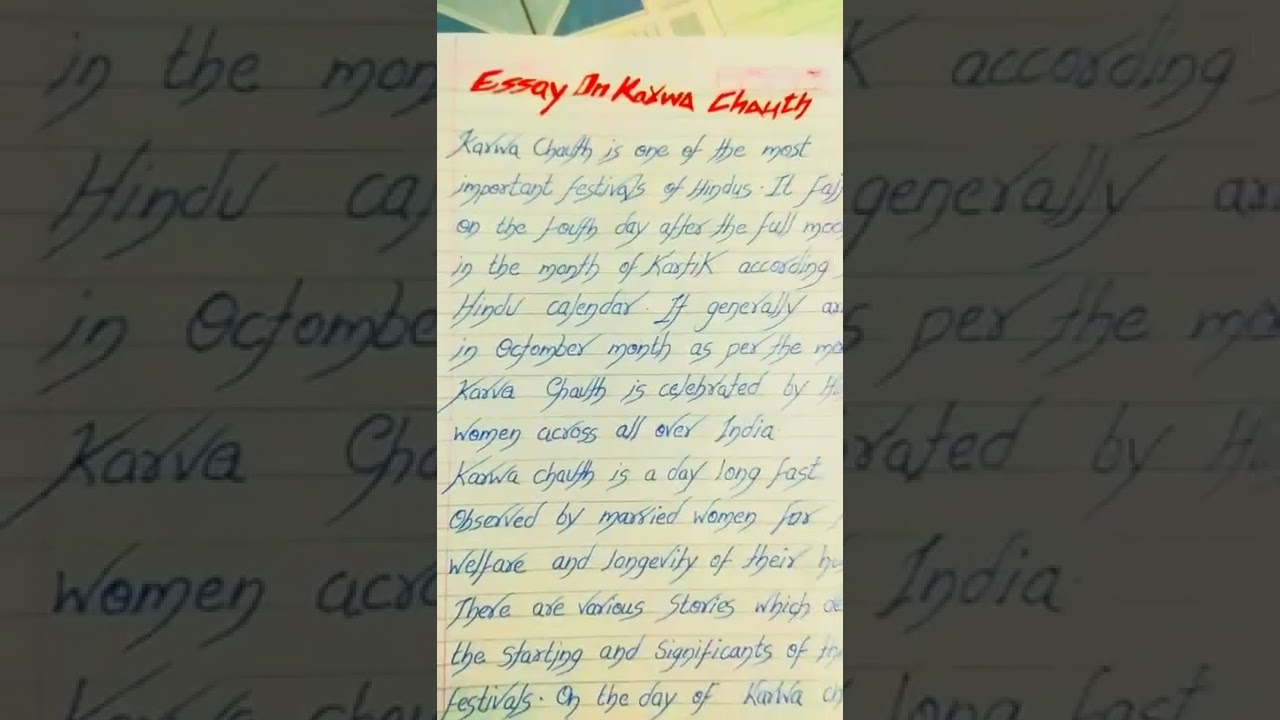 Essay On Karwa Chauth
Karwa Chauth is one of the most
important festivals of Hindus. It
on the fouth day after the full
in the month of Kartik according
Hindu calendar. It generally
in Octomber month as per the
Karva Chauth is celebrated by
women across all over India
Karwa chauth is a day long fast
Observed by married women for
welfare and longevity of their
There are various stories which
the starting and significants of
festivals. On the day of Karwa